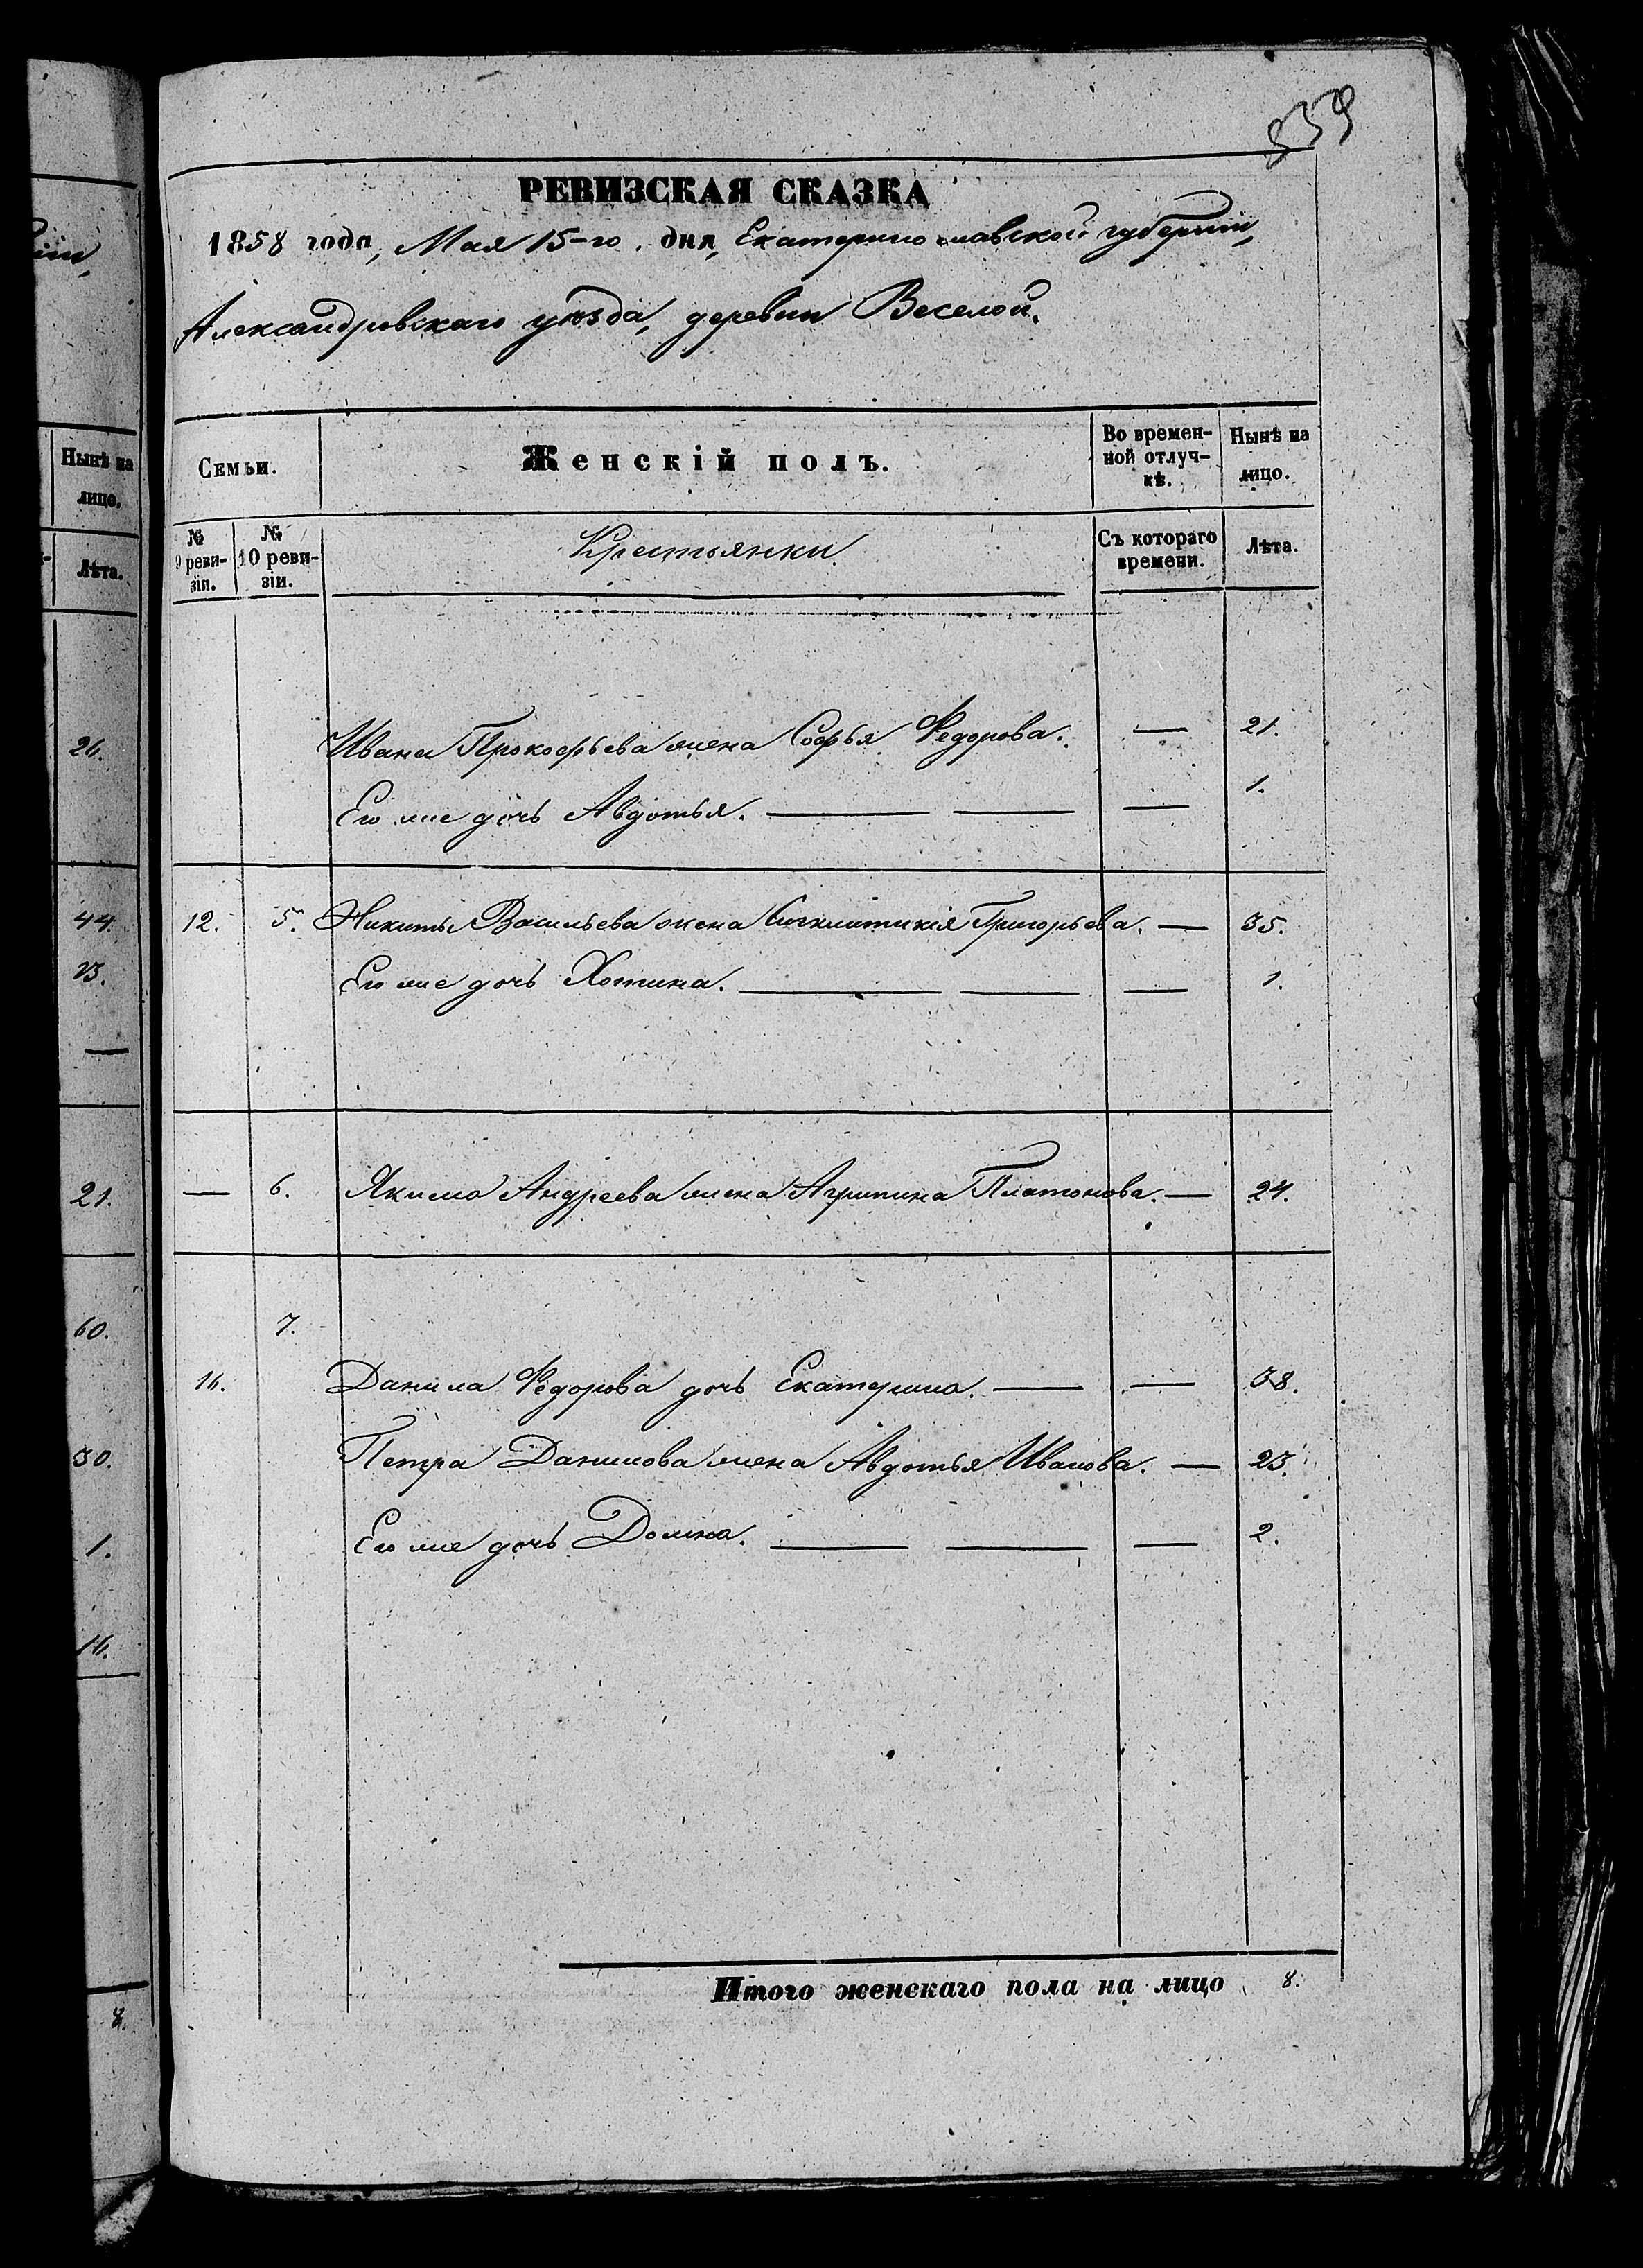 859
РЕВИЗСКАЯ СКАЗКА
1858 года, Мая 15-го дня, Екатеринославской губернiи,
Александровскаго уѣзда, деревни Веселой.
Семьи.
Женскiй полъ.
Во времен-
ной отлуч-
кѣ.
Нынѣ на
лицо.
№
9 реви-
зiи.
№
10 реви-
зiи.
Крестьянки
Съ котораго
времени.
Лѣта.
Ивана Прокофьева жена Софья Федорова. — 21.
Его же дочь Авдотья. — — — 1.
12. 5. Никиты Васильева жена Григорьева. — 35.
Его же дочь Хотина. — — — 1.
— 6. Якима Андреева жена Агрипина Платонова. — 24.
7.
16. Данила Федорова дочь Екатерина. — — 38.
Петра Данилова жена Авдотья Иванова. — 23.
Его же дочь Домна. — — — 2.
Итого женскаго пола на лицо 8.
Нынѣ на
лицо.
Лѣта.
26.
44.
23.
—
21.
60.
30.
1.
16.
8.